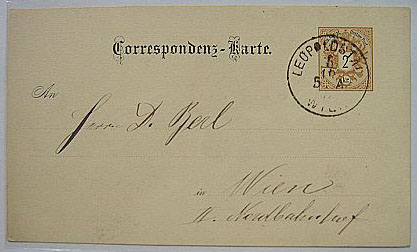 Correspondenz-Karte.
LEOPOLDSTADT
6
2
WIEN
An
Herrn D. Berl
in Wien
II. Nordbahnhof